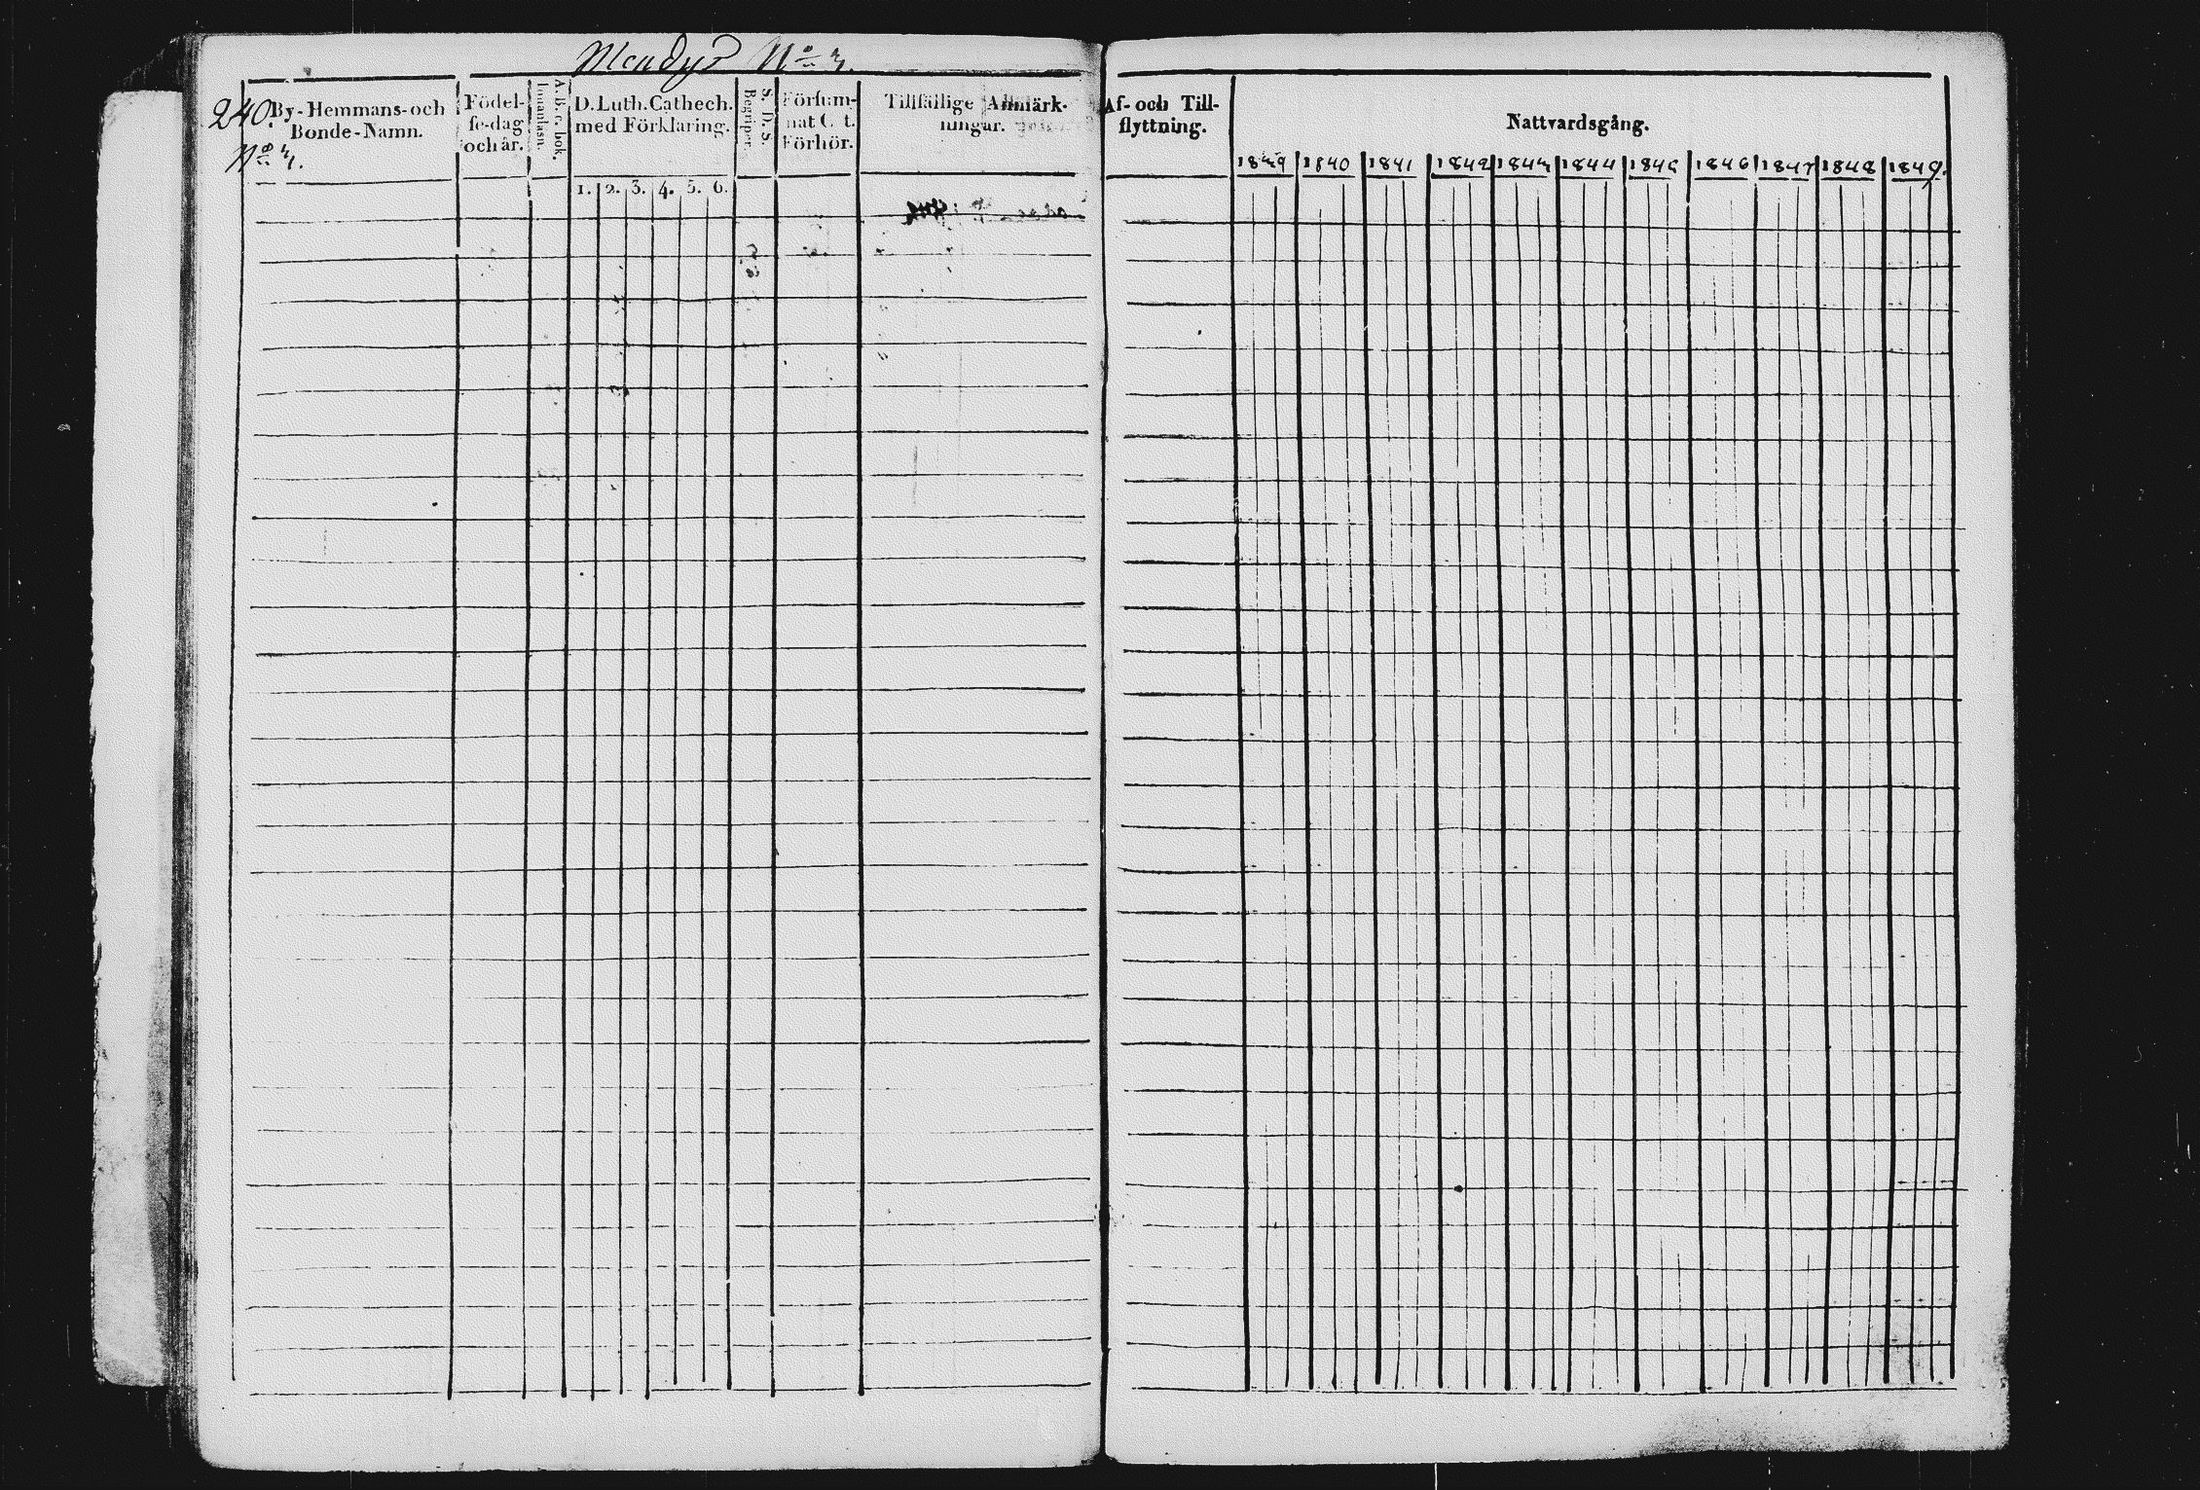 No 3.
240.
No 3.
By-Hemmans-och
Bonde-Namn.
Födel-
se-dag
och år.
A. B. c. bok.
Innanläsn.
D. Luth. Cathech.
med Förklaring.
1. 2. 3. 4. 5. 6.
S. D. S.
Begriper.
Försum-
nat C. t.
Förhör.
Tillfällige Anmärk-
ningar.
Af- och Till-
flyttning.
Nattvardsgång.
1839 1840 1841 1842 1843 1844 1845 1846 1847 1848 1849.